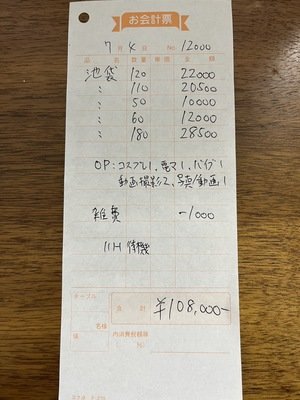 お会計票
7月4日 No. 12000
品名 数量 単価 金額
池袋 120 22000
〃 110 20500
〃 50 10000
〃 60 12000
〃 180 28500
OP:コスプレ1、電マ1、バイブ1
動画撮影2、写真/動画1
雑費 -1000
11H 待機
テーブル
名様
様
合計 ¥108,000-
内消費税額等
%)